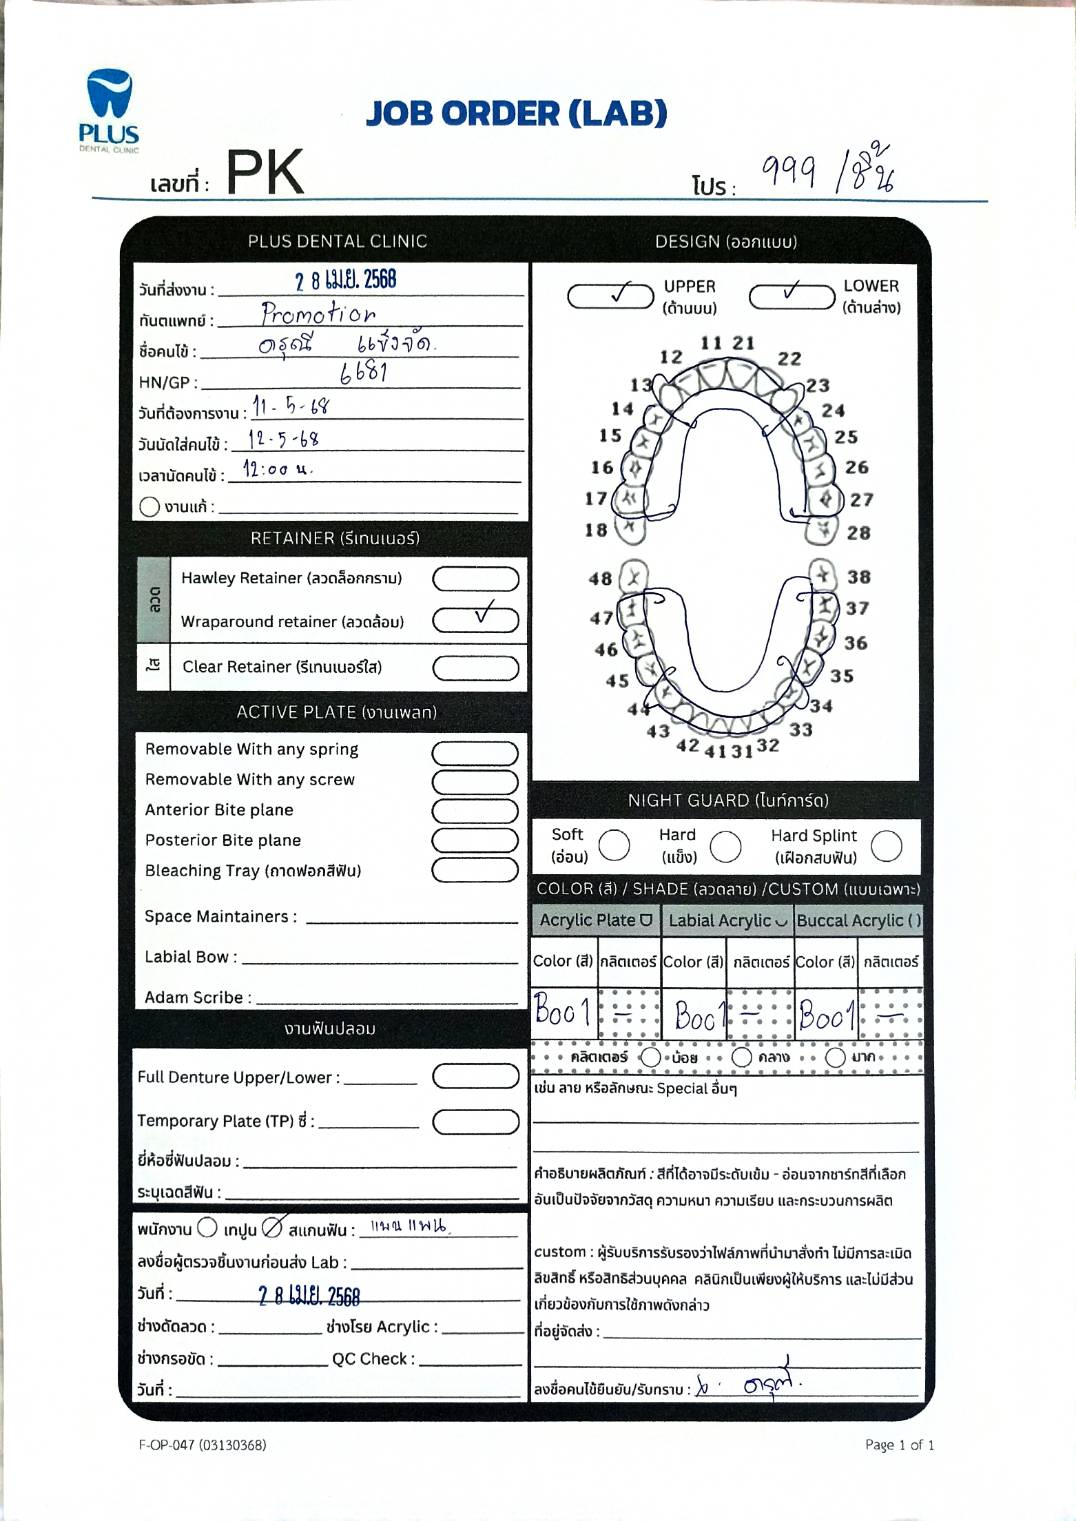 PLUS
DENTAL CLINIC
JOB ORDER (LAB)
เลขที่ : PK
โปร : 999 /ชิ้น
PLUS DENTAL CLINIC
วันที่ส่งงาน : 28 เม.ย. 2568
ทันตแพทย์ : Promotion
ชื่อคนไข้ : ดรุณี แข็งจัด
HN/GP : 6681
วันที่ต้องการงาน : 11-5-68
วันนัดใส่คนไข้ : 12-5-68
เวลานัดคนไข้ : 12:00 น.
งานแก้ :
RETAINER (รีเทนเนอร์)
ลวด
Hawley Retainer (ลวดล็อกกราม)
Wraparound retainer (ลวดล้อม) ✓
ใส
Clear Retainer (รีเทนเนอร์ใส)
ACTIVE PLATE (งานเพลท)
Removable With any spring
Removable With any screw
Anterior Bite plane
Posterior Bite plane
Bleaching Tray (ถาดฟอกสีฟัน)
Space Maintainers :
Labial Bow :
Adam Scribe :
งานฟันปลอม
Full Denture Upper/Lower :
Temporary Plate (TP) ซี่ :
ยี่ห้อซี่ฟันปลอม :
ระบุเฉดสีฟัน :
พนักงาน เทปูน สแกนฟัน : แพนแพน
ลงชื่อผู้ตรวจชิ้นงานก่อนส่ง Lab :
วันที่ : 28 เม.ย. 2568
ช่างดัดลวด : ช่างโรย Acrylic :
ช่างกรอขัด : QC Check :
วันที่ :
DESIGN (ออกแบบ)
✓ UPPER ✓ LOWER
(ด้านบน) (ด้านล่าง)
11 21
12 22
13 23
14 24
15 25
16 26
17 27
18 28
48 38
47 37
46 36
45 35
44 34
43 33
42 41 31 32
NIGHT GUARD (ไนท์การ์ด)
Soft Hard Hard Splint
(อ่อน) (แข็ง) (เฝือกสบฟัน)
COLOR (สี) / SHADE (ลวดลาย) /CUSTOM (แบบเฉพาะ)
Acrylic Plate Labial Acrylic Buccal Acrylic ( )
Color (สี) กลิตเตอร์ Color (สี) กลิตเตอร์ Color (สี) กลิตเตอร์
B001 - B001 - B001 -
กลิตเตอร์ น้อย กลาง มาก
เช่น ลาย หรือลักษณะ Special อื่นๆ
คำอธิบายผลิตภัณฑ์ : สีที่ได้อาจมีระดับเข้ม - อ่อนจากชาร์ทสีที่เลือก
อันเป็นปัจจัยจากวัสดุ ความหนา ความเรียบ และกระบวนการผลิต
custom : ผู้รับบริการรับรองว่าไฟล์ภาพที่นำมาสั่งทำ ไม่มีการละเมิด
ลิขสิทธิ์ หรือสิทธิส่วนบุคคล คลินิกเป็นเพียงผู้ให้บริการ และไม่มีส่วน
เกี่ยวข้องกับการใช้ภาพดังกล่าว
ที่อยู่จัดส่ง :
ลงชื่อคนไข้ยืนยัน/รับทราบ : ดรุณี
F-OP-047 (03130368)
Page 1 of 1